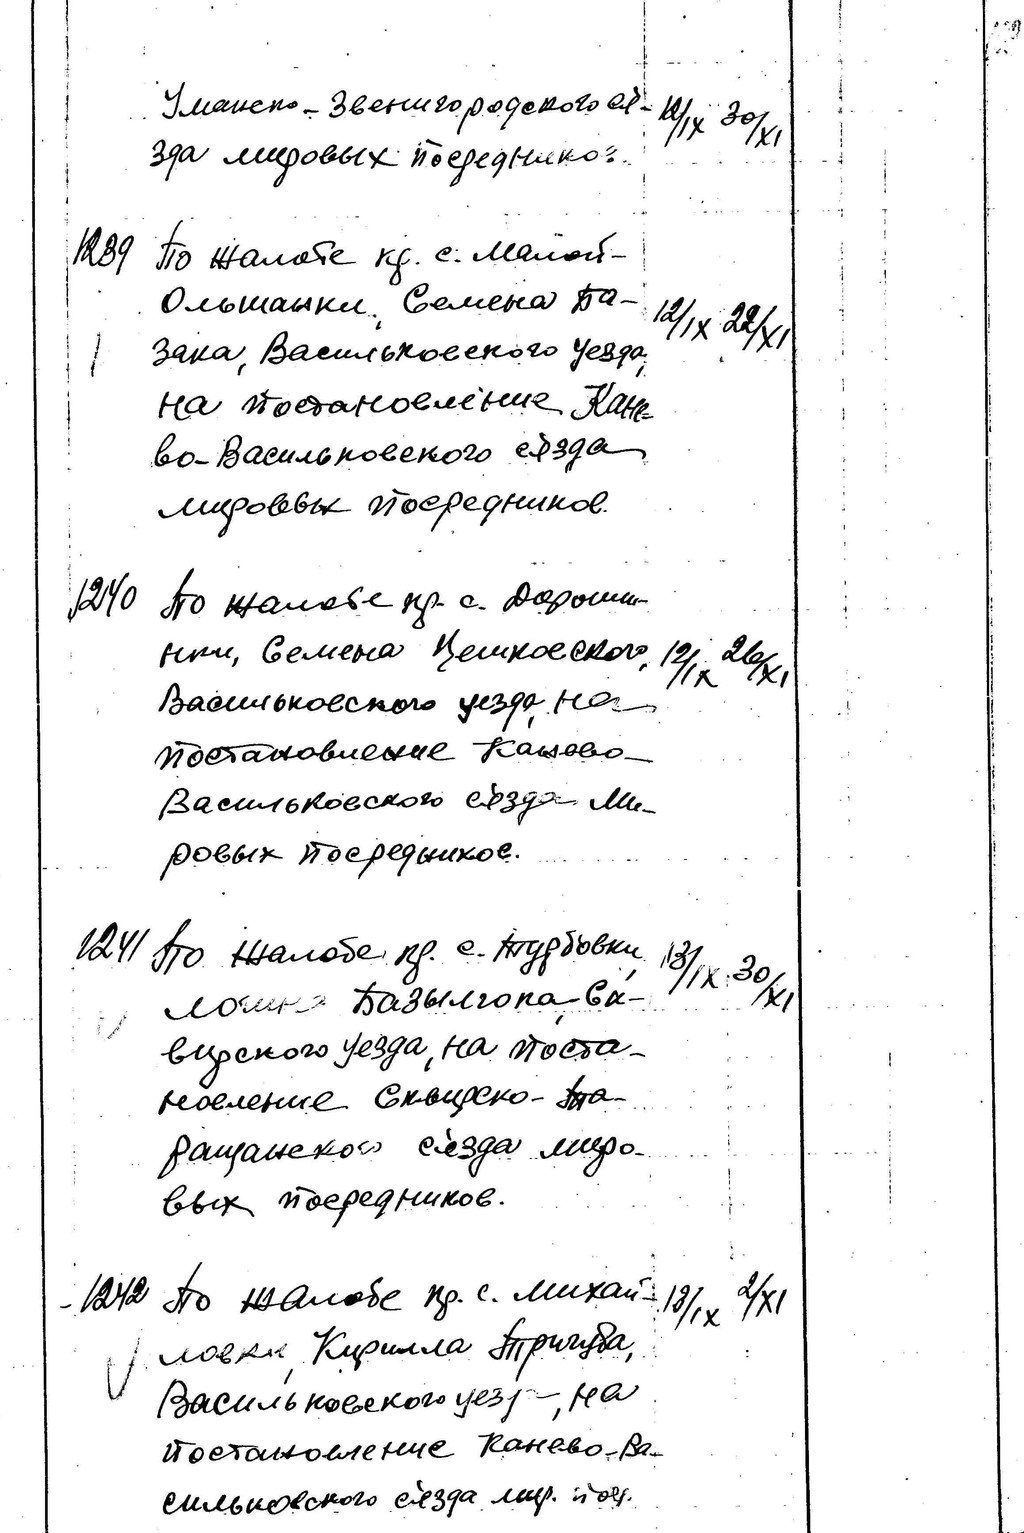 Уманско-Звенигородского съе- 12/IX 30/XI
зда мировых посредников.
1239 По жалобе кр. с. Малой-
Ольшанки, Семена Ба- 12/IX 22/XI
зака, Васильковского уезда,
на постановление Кане-
во-Васильковского съезда
мировых посредников.
1240 По жалобе кр. с. Дорошин-
ки, Семена Цешковского, 12/IX 26/XI
Васильковского уезда, на
постановление Канево-
Васильковского съезда ми-
ровых посредников.
1241 По жалобе кр. с. Турбовки, 13/IX 30/XI
Скв-
вирского уезда, на поста-
новление Сквирско-Та-
ращанского съезда миро-
вых посредников.
1242 По жалобе кр. с. Михай- 13/IX 2/XI
ловки, Кирилла Тригуба,
Васильковского уезда, на
постановление Канево-Ва-
сильковского съезда мир. пос.